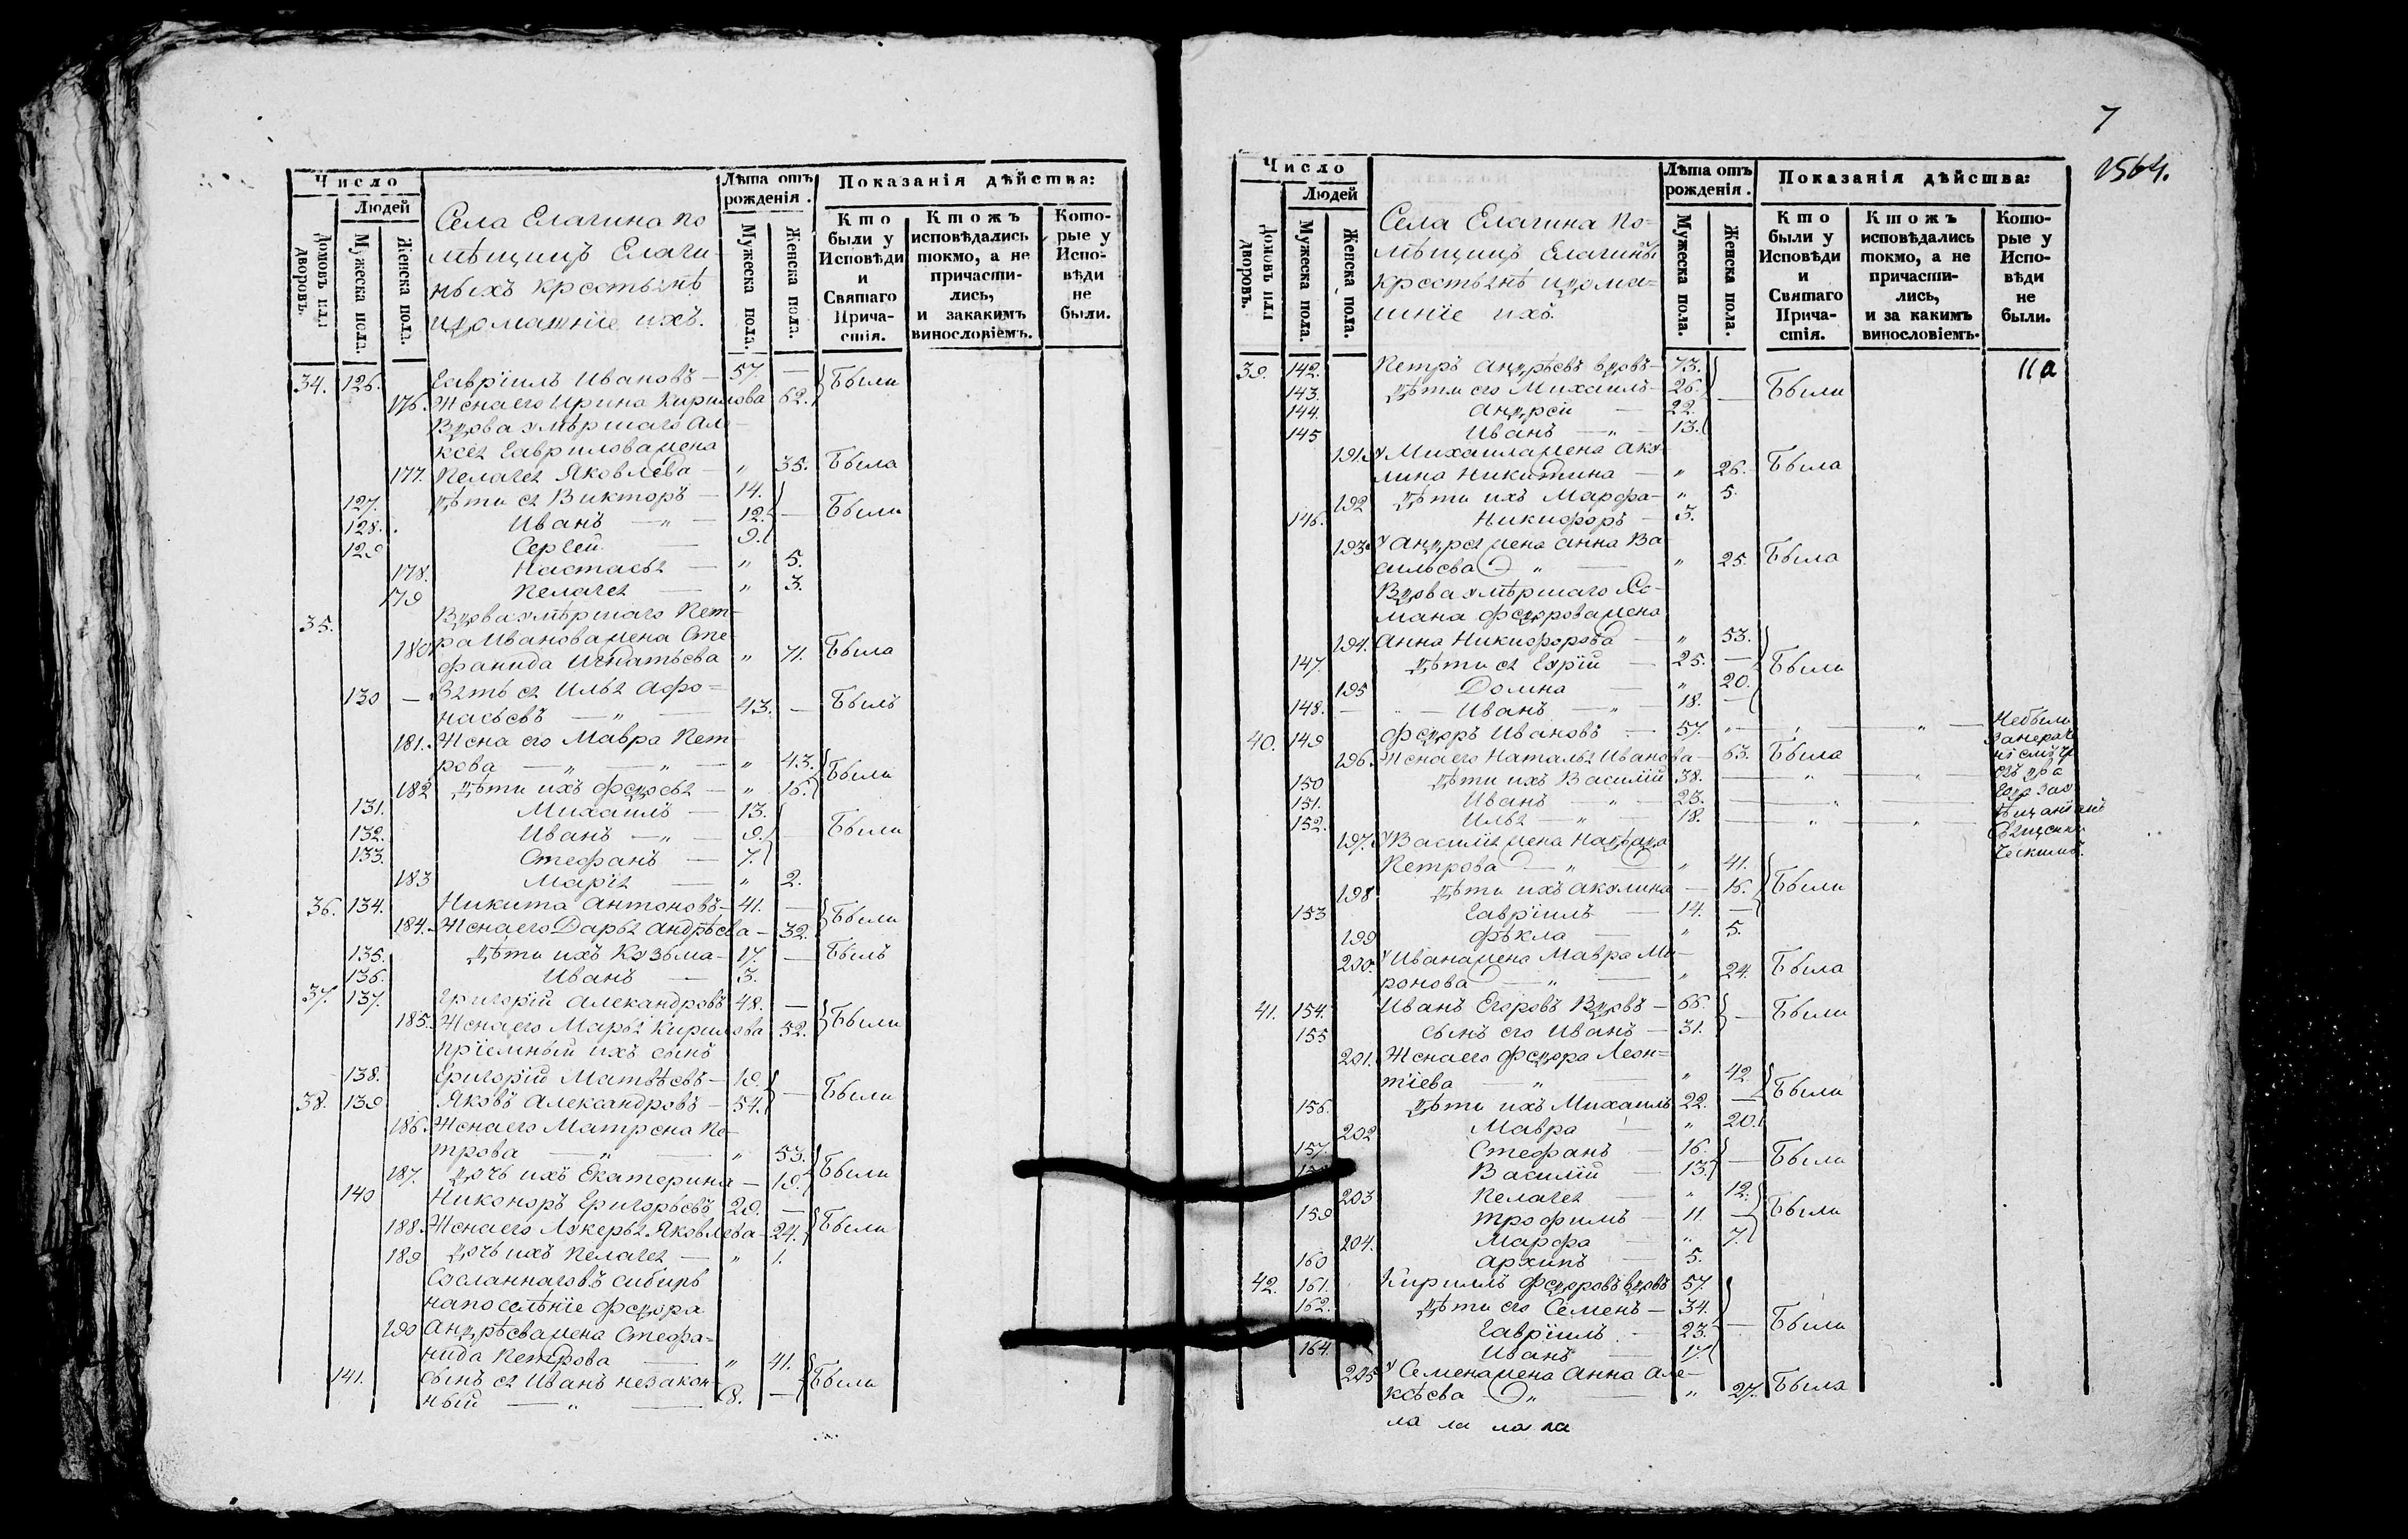 Число
Людей
Домовъ или дворовъ.
Мужеска пола.
Женска пола.
Села Елагина по
мѣщицъ Елаги-
ныхъ крестьянѣ
идомашніе ихъ.
Лѣта отъ рожденія.
Мужеска пола.
Женска пола.
Показанія дѣйства:
Кто были у Исповѣди и Святаго Причастія.
Ктожъ исповѣдались токмо, а не причастились, и закакимъ винословіемъ.
Которые у Исповѣди не были.
34. 126. Гавріилъ Ивановъ — 57. — Были
176. Жена его Ирина Кирилова 62.
Вдова умѣршаго Але-
ксея Гаврилова жена
177. Пелагея Яковлева — " 35. Была
127. Дѣти ея Викторъ — 14.
128. Иванъ — " — 12. — Были
129 Сергей — 9.
178. Настасья — " 5.
179 Пелагея — " 3.
35. Вдова умѣршаго Пет-
ра Иванова жена Сте
180 фанида Игнатьева " 71. Была
130 — Зять ея Илья Афо=
насьевъ — " — 43. — Былъ
181. Жена его Мавра Пет
рова — " — " — " 43. Были
182 Дѣти ихъ Федосья — " 16.
131. Михаилъ — 13.
132. Иванъ — " — 9. — Были
133. Стефанъ — 7.
183 Марія — " 2.
36. 134. Никита Антоновъ — 41. — Были
184. Жена его Дарья Андрѣева — 32.
135. Дѣти ихъ Кузьма — 17. — Былъ
136. Иванъ — 3.
37. 137. Григорій Александровъ 48. — Были
185. Жена его Марья Кирилова 52.
Пріемный ихъ сынъ
138. Григорій Матвѣевъ — 19.
38. 139 Яковъ Александровъ — 54. — Были
186. Жена его Матрена Пе-
трова — " — " 53. Были
187. Дочь ихъ Екатерина — 19.
140 Никоноръ Григорьевъ 29. —
188. Жена его Лукерья Яковлева — 24. Были
189 Дочь ихъ Пелагея — " 1.
Сосланнаго въ Сибирь
на поселѣніе Федора
190 Андрѣева жена Стефа=
нида Петрова — " 41.
141. Сынъ ея Иванъ незакон-
ный — " — 8. — Были
7
1564.
Число
Людей
Домовъ или дворовъ.
Мужеска пола.
Женска пола.
Села Елагина по=
мѣщицъ Елагины
крестьянѣ идома=
шніе ихъ.
Лѣта отъ рожденія.
Мужеска пола.
Женска пола.
Показанія дѣйства:
Кто были у Исповѣди и Святаго Причастія.
Ктожъ исповѣдались токмо, а не причастились, и за какимъ винословіемъ.
Которые у Исповѣди не были.
11а
39. 142. Петръ Андрѣевъ вдовъ — 73.
143. Дѣти его Михаилъ — 26. — Были
144. Андрей — 22.
145 Иванъ — " — 13.
191. У Михаила жена Аку
лина Никитина — " 26. Была
192 Дѣти ихъ Марфа — " 5.
146. Никифоръ — 3.
193. У Андрея жена Анна Ва
сильева — " — " 25. Была
Вдова умѣршаго Ро-
мана Федорова жена
194. Анна Никифорова — " 53.
147. Дѣти ея Гурій — 25. — Были
195 Домна — " 20.
148. — Иванъ — " — 18. —
40. 149 Федоръ Ивановъ — 57. " — " — " — Небыли
196. Жена его Наталья Иванова — 63. Была
150 Дѣти ихъ Василій 38. — " — " —
151. Иванъ — " — 23. — " —
152. Илья — " — 18. — " — " —
197. У Василія жена
Петрова — " — " 41.
198. Дѣти ихъ Акулина — 16. Были
153 Гавріилъ — 14. —
199 Фекла — " 5.
200. У Ивана жена Мавра Ми-
ронова — " — " 24. Была
41. 154. Иванъ Егоровъ Вдовъ — 66.
155 сынъ его Иванъ — 31. — Были
201. Жена его Федора Леон=
тіева — " — " 42.
156. Дѣти ихъ Михаилъ 22. — Были
202 Мавра — " 20.
157. Стефанъ — 16.
Василій — 13. — Были
203 Пелагея — " 12.
159 Трофимъ — 11 — Были
204. Марфа — " 7.
160 Архипъ — 5.
42. 161. Кирилъ Федоровъ вдовъ 57.
162. Дѣти его Семенъ — 34. — Были
Гавріилъ — 23.
164. Иванъ — 17.
205 У Семена жена Анна Але-
ксѣева — " — " 27. Была
ла ла ла ла